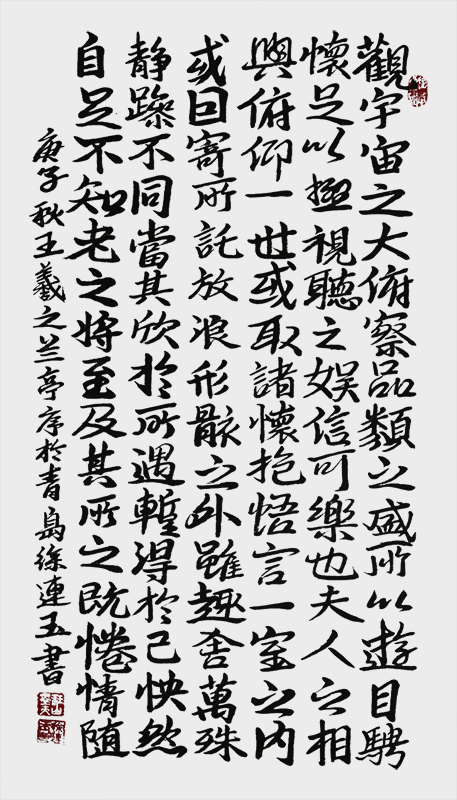 觀宇宙之大俯察品類之盛所以遊目騁
懷足以極視聽之娛信可樂也夫人之相
與俯仰一世或取諸懷抱悟言一室之内
或因寄所託放浪形骸之外雖趣舍萬殊
静躁不同當其欣於所遇蹔得於己怏然
自足不知老之将至及其所之既惓情随
庚子秋王羲之兰亭序於青島徐連玉書